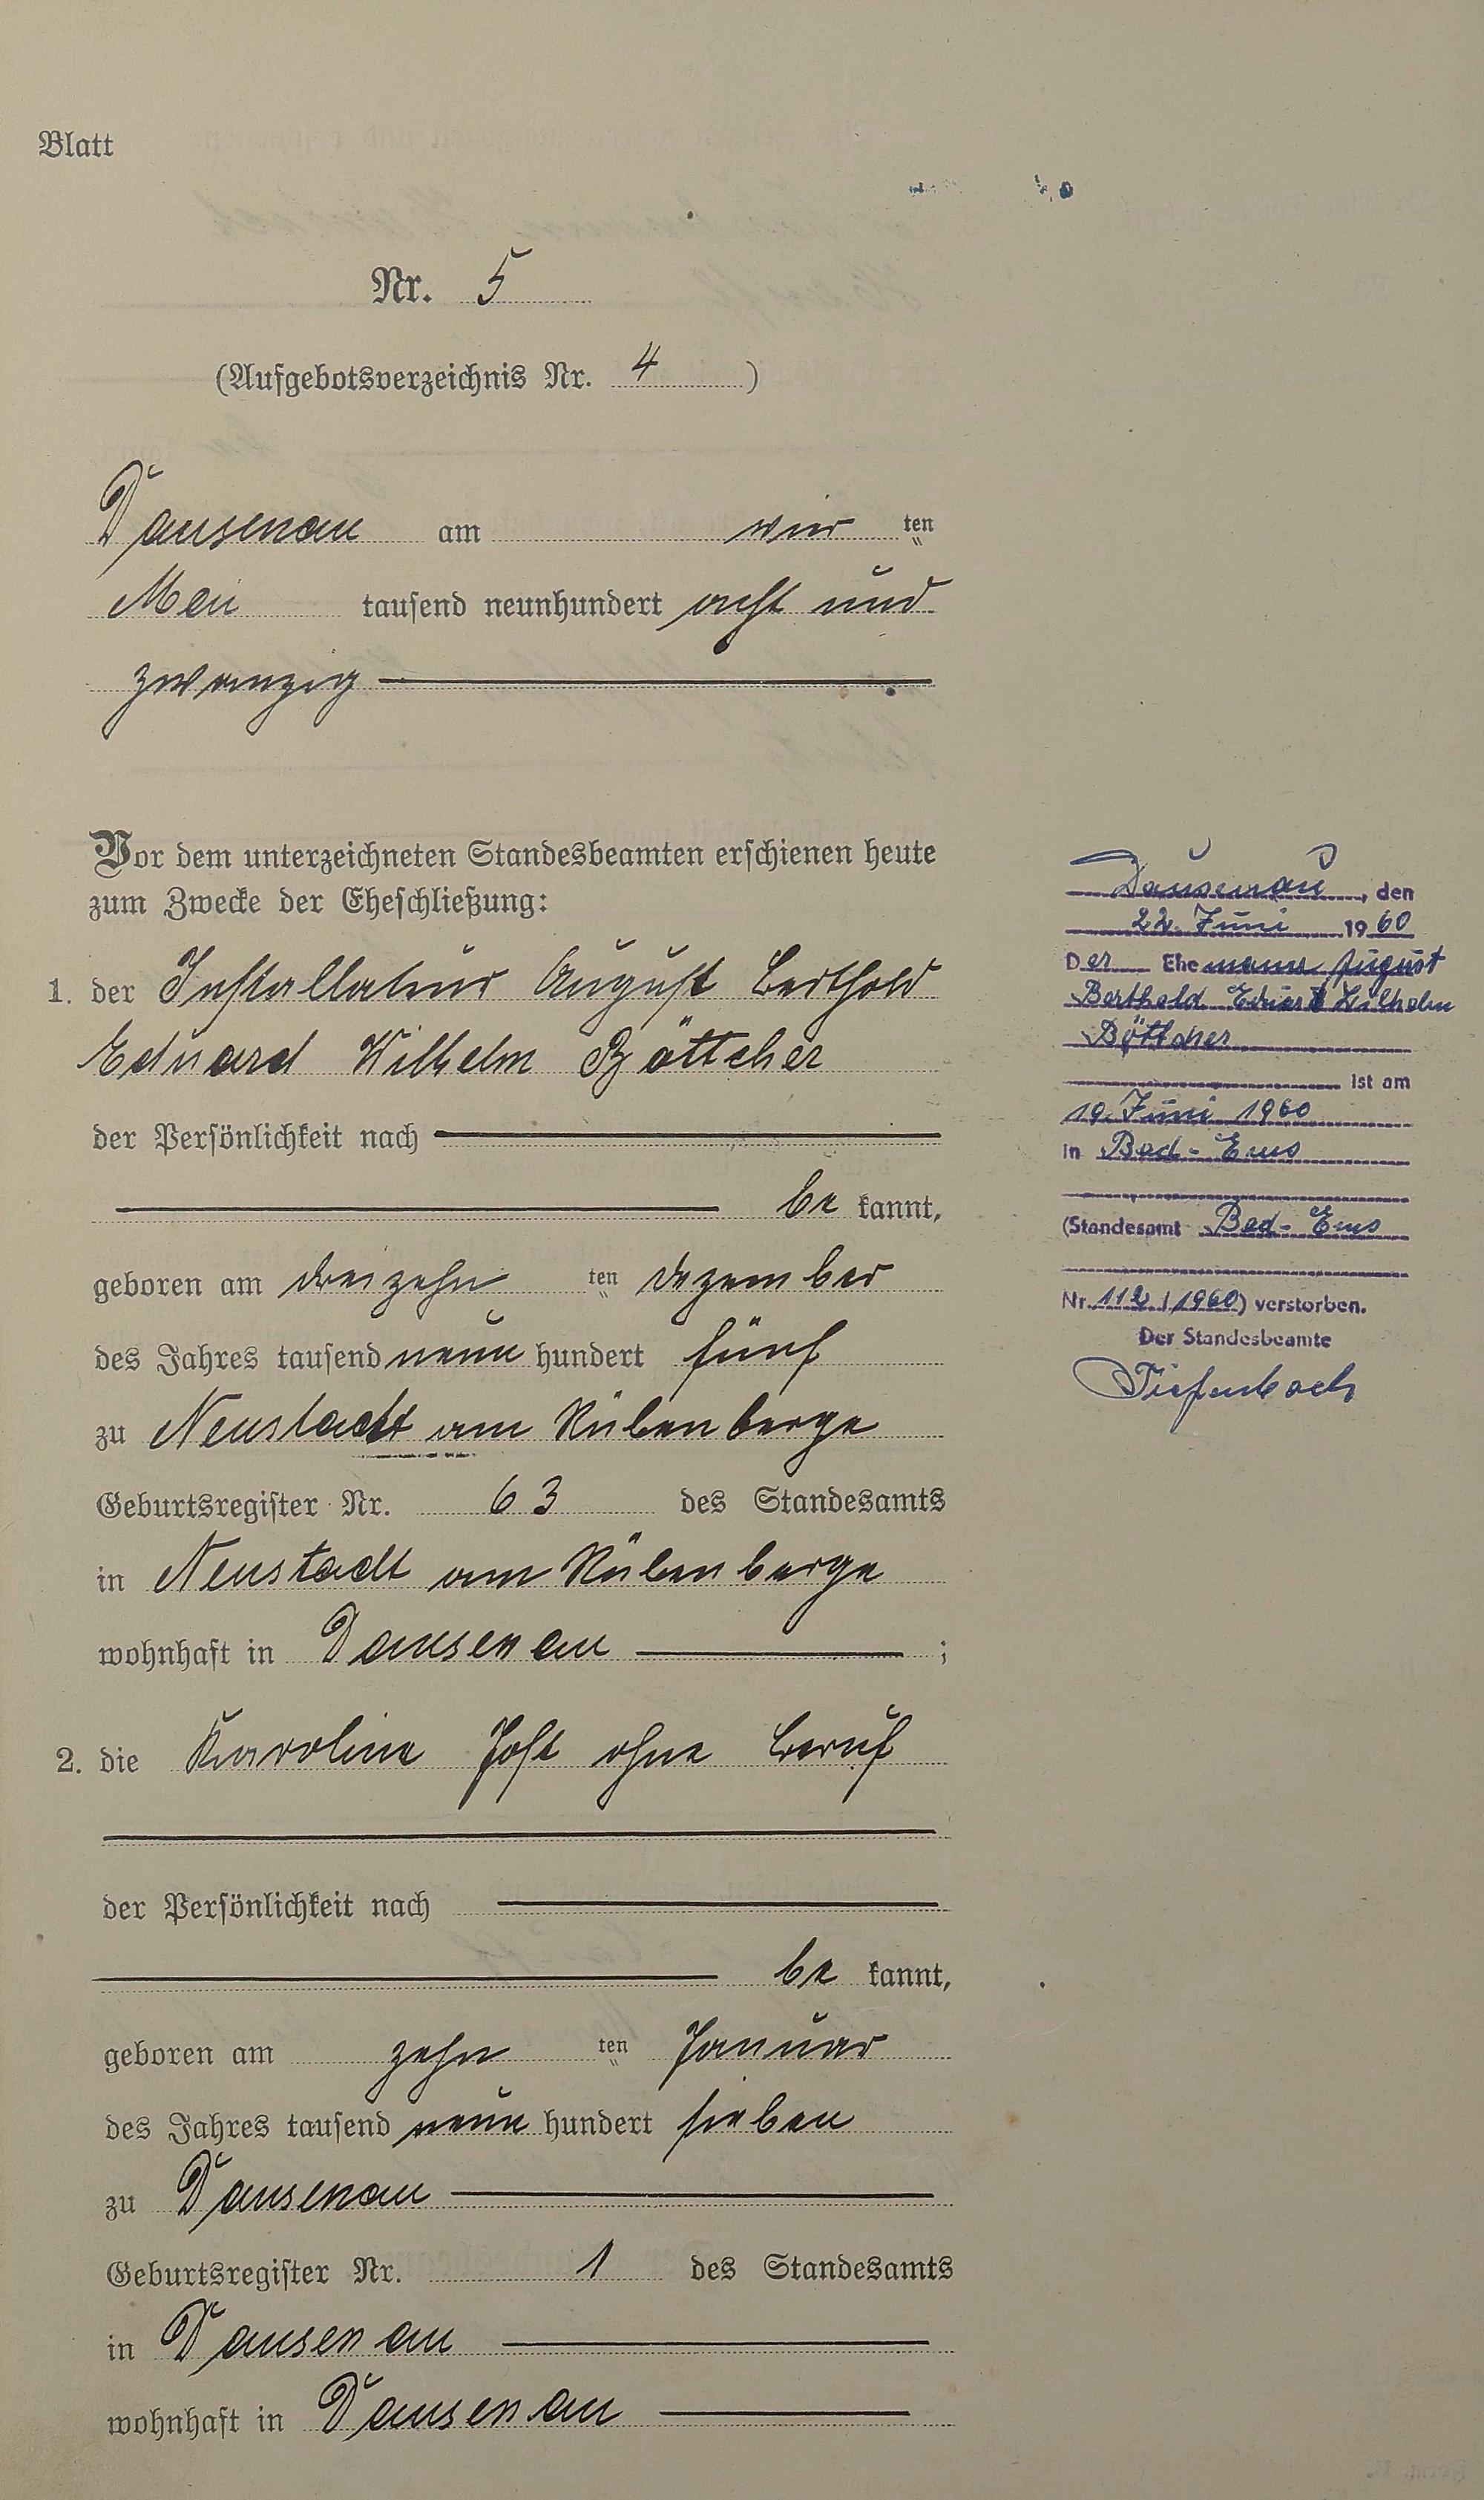 Blatt
Nr. 5
(Aufgebotsverzeichnis Nr. 4)
Dausenau am vier ten
Mai tausend neunhundert acht und
zwanzig
Vor dem unterzeichneten Standesbeamten erschienen heute
zum Zwecke der Eheschließung:
1. der Installateur August Berthold
Eduard Wilhelm Böttcher
der Persönlichkeit nach
be kannt,
geboren am dreizehn ten Dezember
des Jahres tausend neun hundert fünf
zu Neustadt am Rübenberge
Geburtsregister Nr. 63 des Standesamts
in Neustadt am Rübenberge
wohnhaft in Dausenau ;
2. die Karoline Jost ohne Beruf
der Persönlichkeit nach
be kannt,
geboren am zehn ten Januar
des Jahres tausend neun hundert sieben
zu Dausenau
Geburtsregister Nr. 1 des Standesamts
in Dausenau
wohnhaft in Dausenau
Dausenau, den
22. Juni 1960
Der Ehemann August
Berthold Eduard Wilhelm
Böttcher
ist am
19. Juni 1960
in Bad-Ems
(Standesamt Bad-Ems
Nr. 112/1960) verstorben.
Der Standesbeamte
Tiefenbach